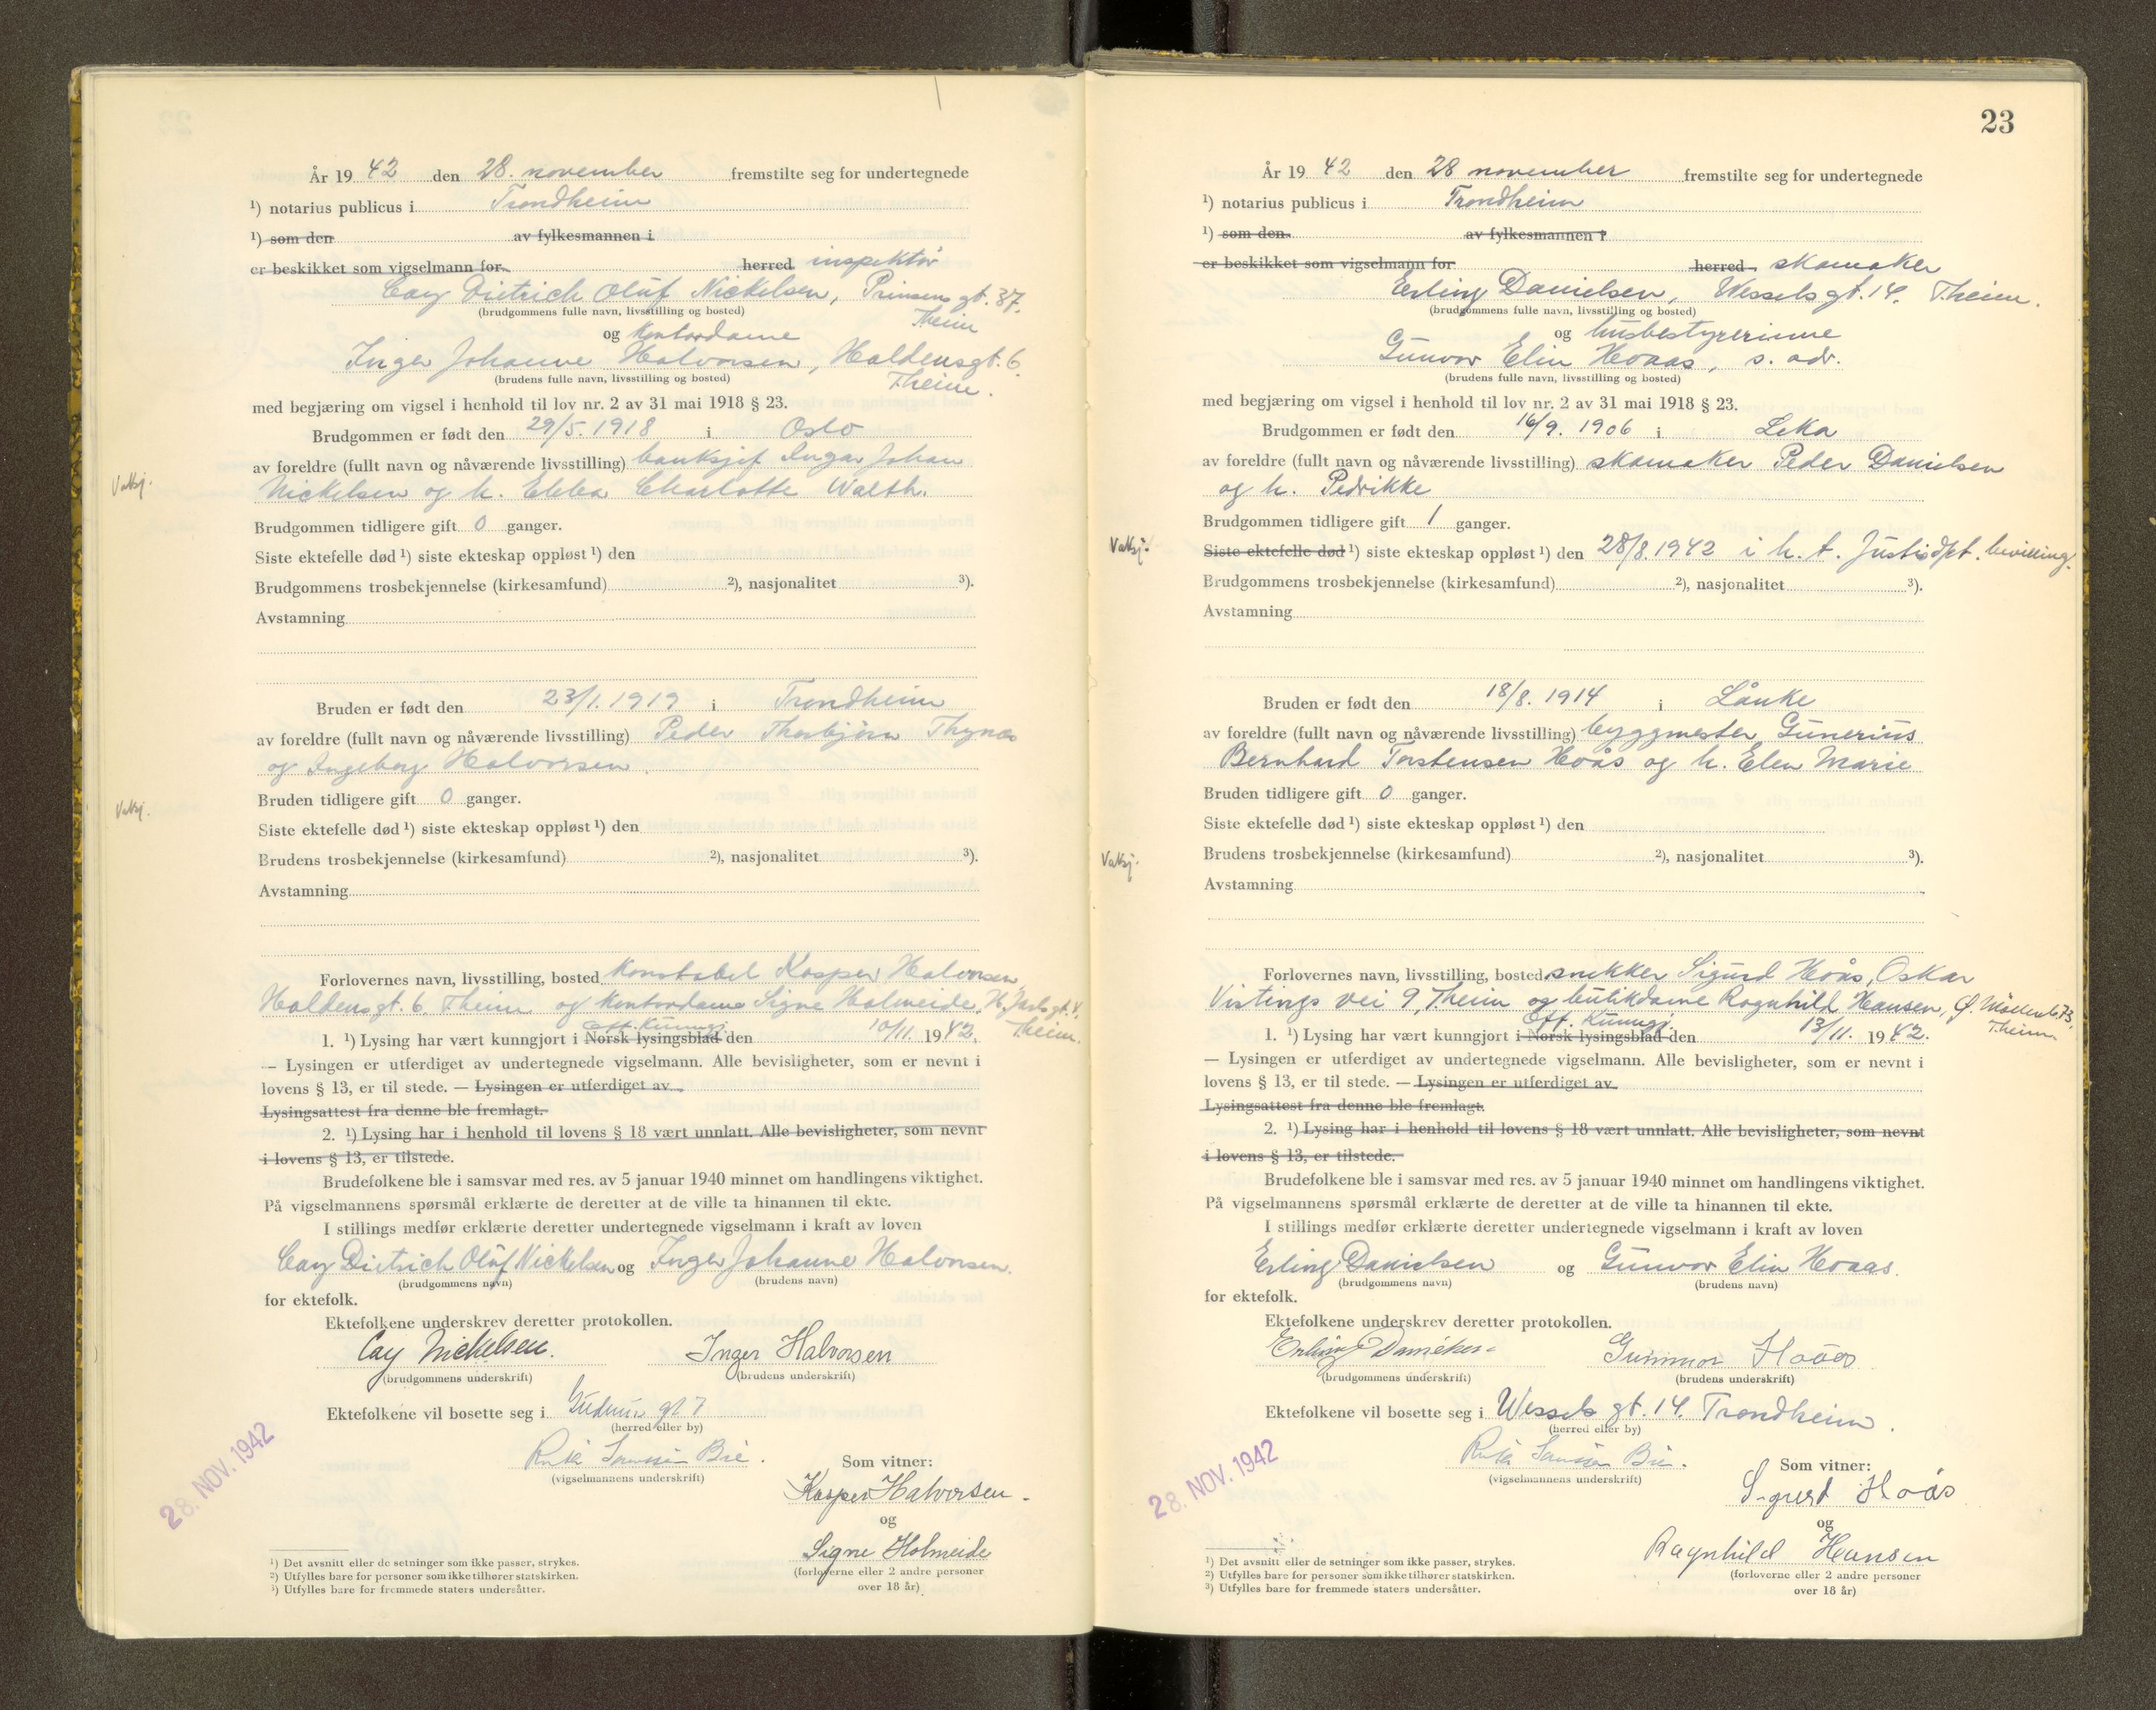 År 19 42 den 28. november fremstilte seg for undertegnede
¹) notarius publicus i Trondheim
¹) som den av fylkesmannen i
er beskikket som vigselmann for herred inspektør
Cay Dietrich Olüf Nickelsen, Prinsens gt. 37.
(brudgommens fulle navn, livsstilling og bosted) Theim
og Kontordame
Inger Johanne Halvorsen, Haldensgt. 6
(brudens fulle navn, livsstilling og bosted) Theim.
med begjæring om vigsel i henhold til lov nr. 2 av 31 mai 1918 § 23.
Brudgommen er født den 29/5. 1918 i Oslo
av foreldre (fullt navn og nåværende livsstilling) banksjef Ingar Johan
Vaksj.
Nickelsen og h. Ebba Charlotte Walth.
Brudgommen tidligere gift 0 ganger.
Siste ektefelle død ¹) siste ekteskap oppløst ¹) den
Brudgommens trosbekjennelse (kirkesamfund) ²), nasjonalitet ³).
Avstamning
Bruden er født den 23/1. 1919 i Trondheim
av foreldre (fullt navn og nåværende livsstilling) Peder Thorbjørn Thynæs
og Ingeborg Halvorsen.
Bruden tidligere gift 0 ganger.
Vaksj.
Siste ektefelle død ¹) siste ekteskap oppløst ¹) den
Brudens trosbekjennelse (kirkesamfund) ²), nasjonalitet ³).
Avstamning
Forlovernes navn, livsstilling, bosted Konstabel Kasper Halvorsen,
Haldensgt. 6 Theim og Kontordame Signe Holmeide, H. Jarls gt. 4,
Off. Kunngj. Theim.
1. ¹) Lysing har vært kunngjort i Norsk lysingsblad den 10/11. 1942.
— Lysingen er utferdiget av undertegnede vigselmann. Alle bevisligheter, som er nevnt i
lovens § 13, er til stede. — Lysingen er utferdiget av
Lysingsattest fra denne ble fremlagt.
2. ¹) Lysing har i henhold til lovens § 18 vært unnlatt. Alle bevisligheter, som nevnt
i lovens § 13, er tilstede.
Brudefolkene ble i samsvar med res. av 5 januar 1940 minnet om handlingens viktighet.
På vigselmannens spørsmål erklærte de deretter at de ville ta hinannen til ekte.
I stillings medfør erklærte deretter undertegnede vigselmann i kraft av loven
Cay Dietrich Olüf Nickelsen og Inger Johanne Halvorsen.
(brudgommens navn) (brudens navn)
for ektefolk.
Ektefolkene underskrev deretter protokollen.
Cay Nickelsen. Inger Halvorsen
(brudgommens underskrift) (brudens underskrift)
Ektefolkene vil bosette seg i Gudruns gt 7
(herred eller by)
Bie. Som vitner:
(vigselmannens underskrift)
Kasper Halvorsen.
og
Signe Holmeide
(forloverne eller 2 andre personer
over 18 år)
28. NOV. 1942
¹) Det avsnitt eller de setninger som ikke passer, strykes.
²) Utfylles bare for personer som ikke tilhører statskirken.
³) Utfylles bare for fremmede staters undersåtter.
23
År 19 42 den 28 november fremstilte seg for undertegnede
¹) notarius publicus i Trondheim
¹) som den av fylkesmannen i
er beskikket som vigselmann for herred skomaker
Erling Danielsen, Wesselsgt. 14. Theim.
(brudgommens fulle navn, livsstilling og bosted)
og husbestyrerinne
Gunvor Elin Hoaas, s. adr.
(brudens fulle navn, livsstilling og bosted)
med begjæring om vigsel i henhold til lov nr. 2 av 31 mai 1918 § 23.
Brudgommen er født den 16/9. 1906 i Leka
av foreldre (fullt navn og nåværende livsstilling) skomaker Peder Danielsen
og h. Pedrikke
Brudgommen tidligere gift 1 ganger.
Vaksj.
Siste ektefelle død ¹) siste ekteskap oppløst ¹) den 28/8. 1942 i h. t. Justisdpt. bevilling.
Brudgommens trosbekjennelse (kirkesamfund) ²), nasjonalitet ³).
Avstamning
Bruden er født den 18/8. 1914 i Lånke
av foreldre (fullt navn og nåværende livsstilling) byggmester Gunerius
Bernhard Torstensen Hoås og h. Elen Marie
Bruden tidligere gift 0 ganger.
Siste ektefelle død ¹) siste ekteskap oppløst ¹) den
Vaksj.
Brudens trosbekjennelse (kirkesamfund) ²), nasjonalitet ³).
Avstamning
Forlovernes navn, livsstilling, bosted snekker Sigurd Hoås, Oskar
Vistings vei 9, Theim og butikdame Ragnhild Hansen,
Off. Kunngj. Theim.
1. ¹) Lysing har vært kunngjort i Norsk lysingsblad den 13/11. 1942.
— Lysingen er utferdiget av undertegnede vigselmann. Alle bevisligheter, som er nevnt i
lovens § 13, er til stede. — Lysingen er utferdiget av
Lysingsattest fra denne ble fremlagt.
2. ¹) Lysing har i henhold til lovens § 18 vært unnlatt. Alle bevisligheter, som nevnt
i lovens § 13, er tilstede.
Brudefolkene ble i samsvar med res. av 5 januar 1940 minnet om handlingens viktighet.
På vigselmannens spørsmål erklærte de deretter at de ville ta hinannen til ekte.
I stillings medfør erklærte deretter undertegnede vigselmann i kraft av loven
Erling Danielsen og Gunvor Elin Hoaas.
(brudgommens navn) (brudens navn)
for ektefolk.
Ektefolkene underskrev deretter protokollen.
Erling Danielsen Gunnvor Hoaas
(brudgommens underskrift) (brudens underskrift)
Ektefolkene vil bosette seg i Wessels gt. 14. Trondheim.
(herred eller by)
Bie. Som vitner:
(vigselmannens underskrift)
Sigurd Hoås
og
Ragnhild Hansen
(forloverne eller 2 andre personer
over 18 år)
28. NOV. 1942
¹) Det avsnitt eller de setninger som ikke passer, strykes.
²) Utfylles bare for personer som ikke tilhører statskirken.
³) Utfylles bare for fremmede staters undersåtter.